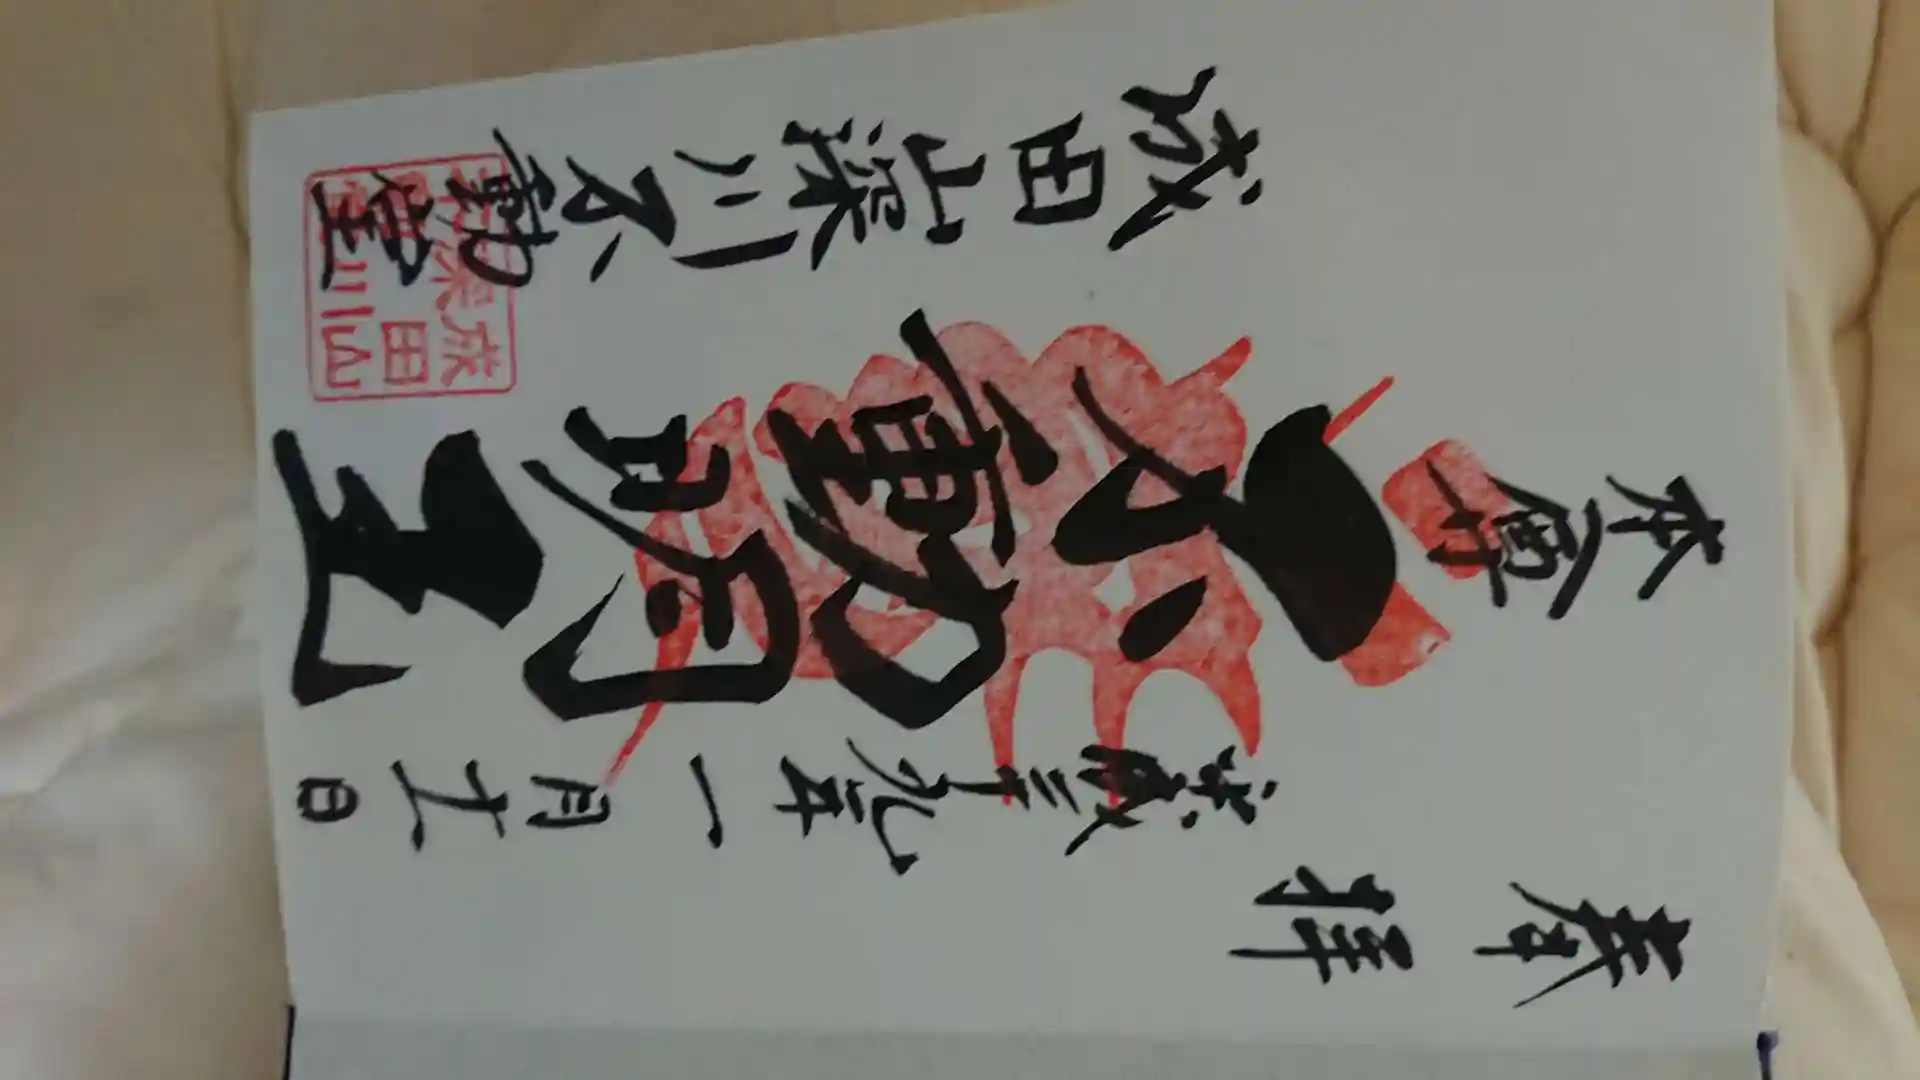 奉拝
平成二十九年一月 日
本尊
不動明王
成田山深川不動堂
成田山
深川